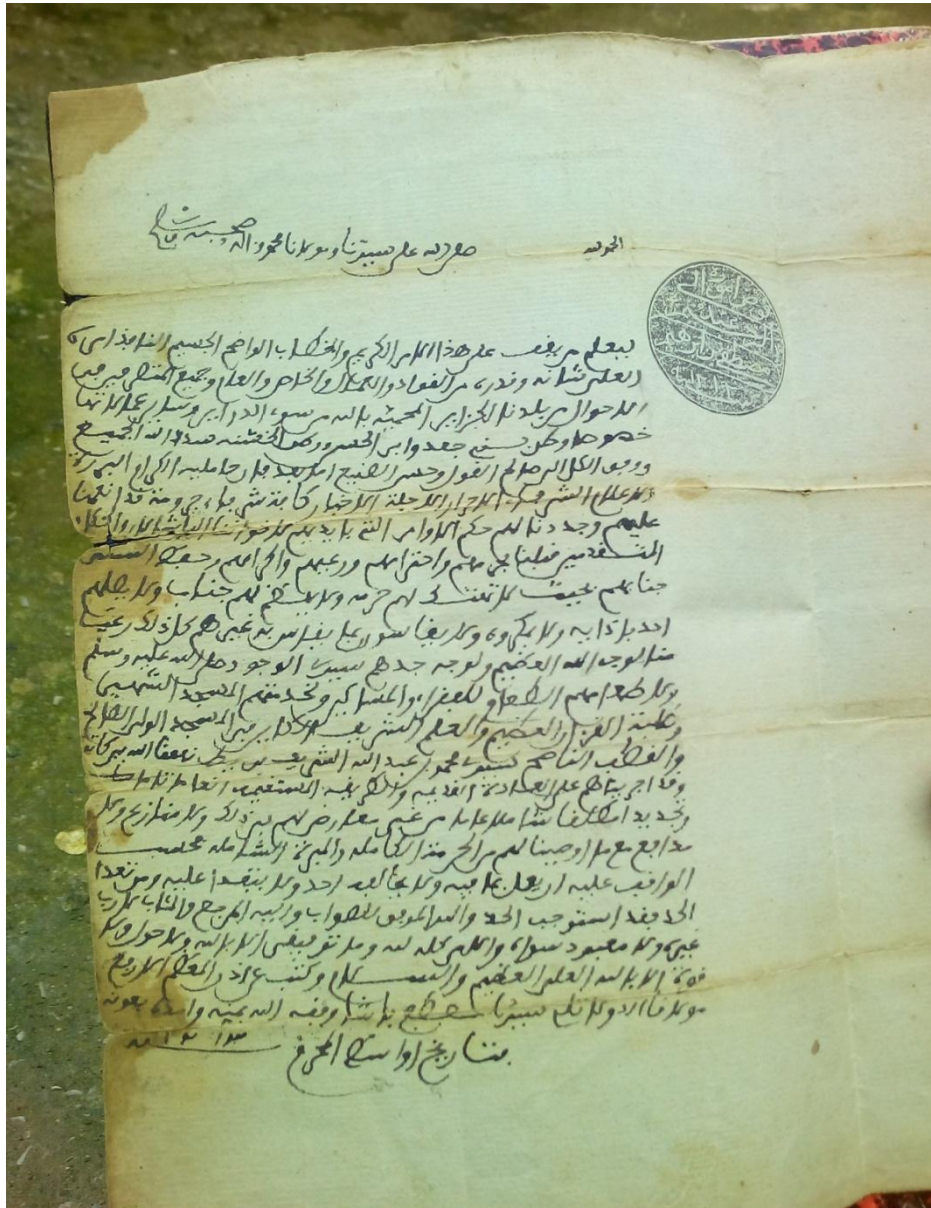 الحمد لله
صلى الله على سيدنا ومولانا محمد وآله وصحبه
ليعلم من يقف على هذا الامر الكريم والخطاب الواضح الجسيم النافذ امره
العلي شانه وقدره من القواد والعمال والخاص والعام وجميع المتصرفين في
الاحوال ببلدنا الجزاير المحمية بالله من سوء الدواير وساير عمالاتها
خصوصا وطن بني جعد وابن الحسن ورس الخشنه سدد الله الجميع
ووفق الكل الى صالح القول وحسن الصنيع اما بعد فان حامليه الكرام البررة
الاعلام الشرفاء الاحرار الاجلة الاخيار كافة قد انعمنا
عليهم وجددنا لهم حكم الاوامر التي بايديهم لاخواننا الباشات
المتقدمين قبلنا واحترامهم ورعيهم واكرامهم وحفظ
جنابهم بحيث لا تهتك لهم حرمة ولا يهضم لهم جناب ولا يصلهم
احد باذاية ولا بمكروه ولا يقاسون بما يقاس به غيرهم كل ذلك رعيا
منا لوجه الله العظيم ولوجه جدهم سيد الوجود صلى الله عليه وسلم
ولاطعامهم الطعام للفقراء والمساكين ولخدمتهم المسجد
وطلبة القرآن العظيم والعلم الشريف المسجد الولي الصالح
والقطب الناصح سيدي محمد بن عبد الله الشريف نفعنا الله ببركاته
وقد اجريناهم على العادة القديمة والطريقة المستقيمة انعاما تاما
وتجديدا مطلقا شاملا عاما من غير معارض لهم في ذلك ولا منازع ولا
مدافع مع ما اوجبنا لهم من الحرمة الكاملة والمبرة الشاملة فحسب
الواقف عليه ان يعمل بما فيه ولا يخالفه احد ولا يتعدا عليه ومن تعدا
الحد فقد استوجب الحد والله الموفق للصواب واليه المرجع والمئاب لا رب
غيره ولا معبود سواه والامر كله لله وما توفيقي الا بالله ولا حول ولا
قوة الا بالله العلي العظيم والسلام وكتب عن اذن المعظم الارفع
مولانا الدولاتلي سيدنا مصطفى باشا وفقه الله بمنه وايده بعونه
بتاريخ اواسط المحرم ١٢١٣ سنة